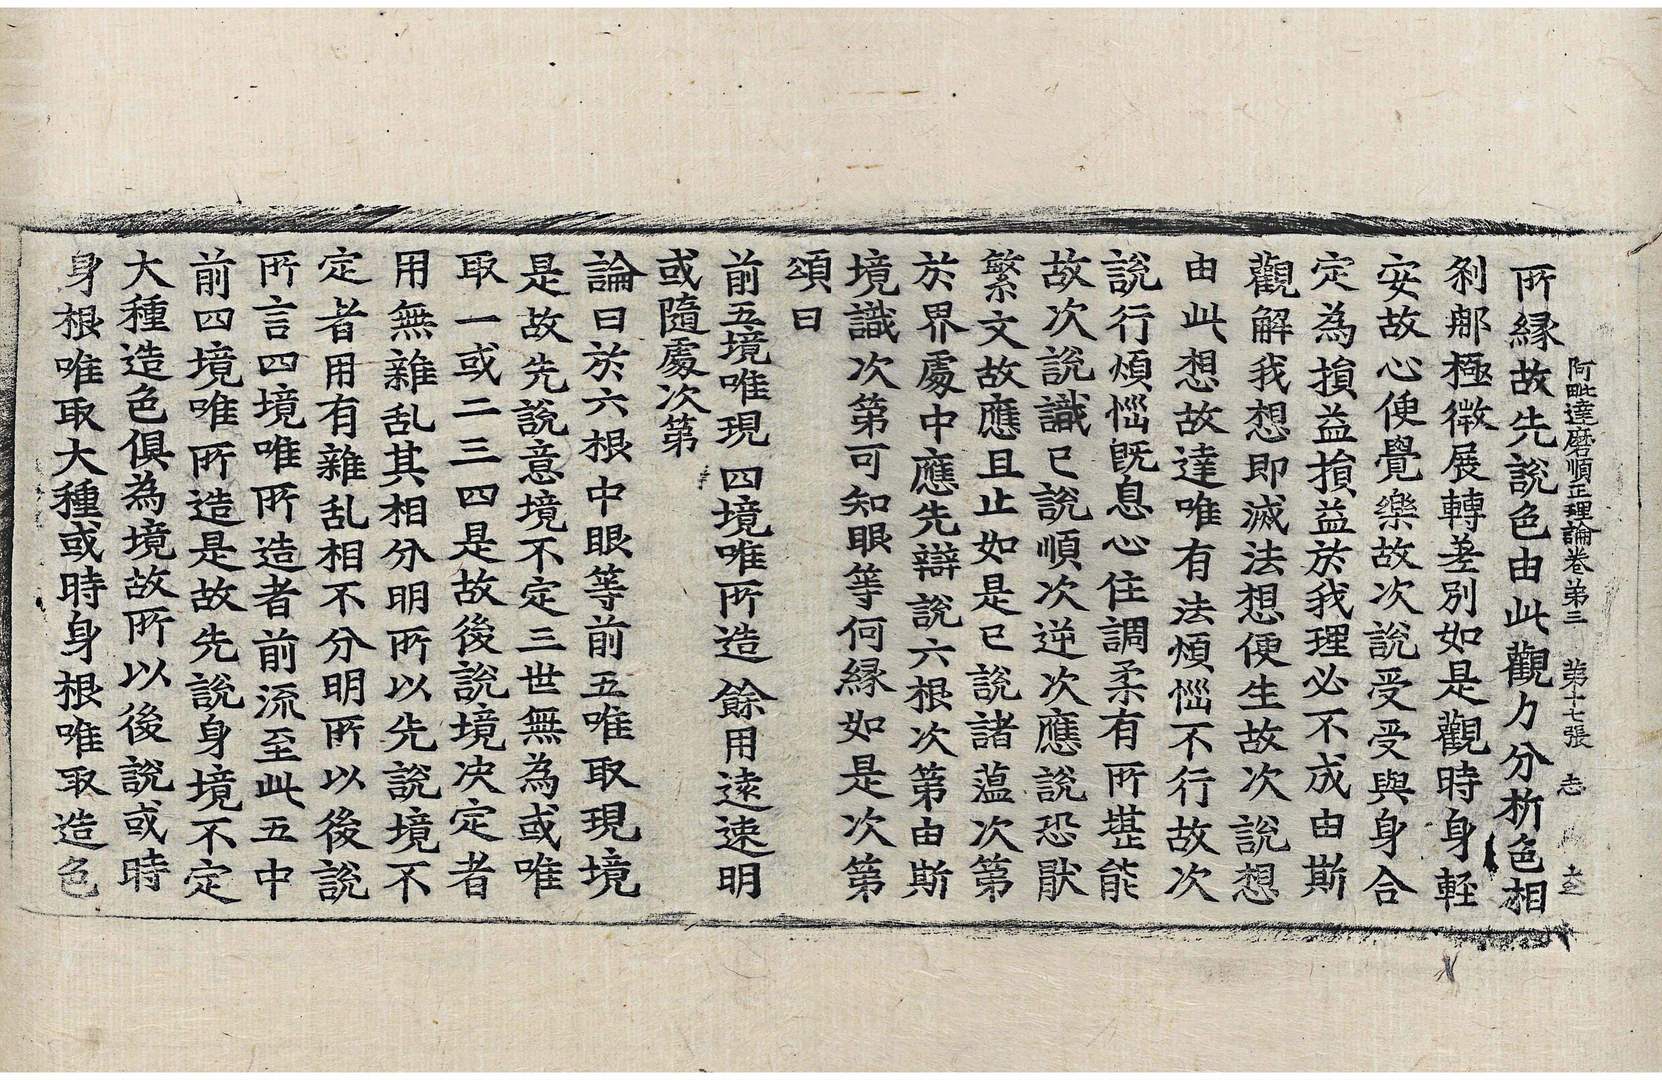 阿毗達磨順正理論卷第三 第十七張 志
所縁故先說色由此觀力分析色相
刹那極微展轉差別如是觀時身軽
安故心便覺樂故次說受受與身合
定為損益損益於我理必不成由斯
觀解我想即滅法想便生故次說想
由此想故達唯有法煩惱不行故次
說行煩惱旣息心住調柔有所堪能
故次說識已說順次逆次應說恐猒
繁文故應且止如是已說諸蕰次第
於界處中應先辯說六根次第由斯
境識次第可知眼等何縁如是次第
頌曰
前五境唯現 四境唯所造 餘用遠速明
或隨處次第
論曰於六根中眼等前五唯取現境
是故先說意境不定三世無為或唯
取一或二三四是故後說境決定者
用無雜乱其相分明所以先說境不
定者用有雜乱相不分明所以後說
所言四境唯所造者前流至此五中
前四境唯所造是故先說身境不定
大種造色俱為境故所以後說或時
身根唯取大種或時身根唯取造色